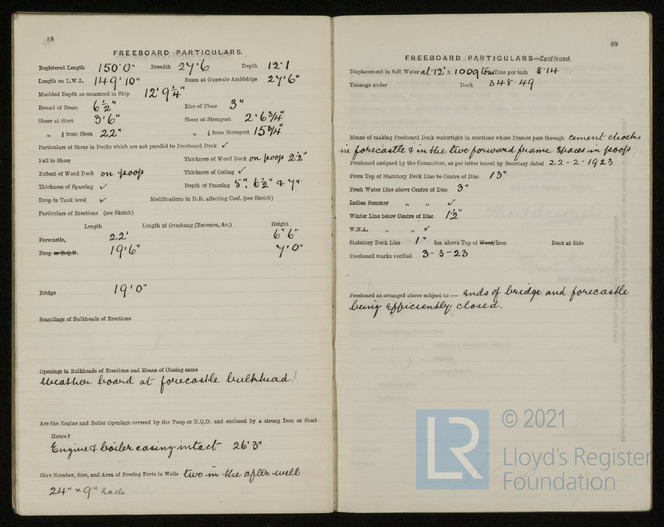 88
FREEBOARD PARTICULARS.
Registered Length 150'0" Breadth 27'6 Depth 12'1
Length on L.W.L. 149'10" Beam at Gunwale Amidships 27'6"
Moulded Depth as measured in Ship 12'9¼"
Round of Beam 6½" Rise of Floor 3"
Sheer at Stem 3'6" Sheer at Sternpost 2'6¾"
" ⅛ from Stem 22" " ⅛ from Sternpost 15¾"
Particulars of Sheer in Decks which are not parallel to Freeboard Deck ✓
Fall in Sheer Thickness of Wood Deck on poop 2½"
Extent of Wood Deck on poop Thickness of Ceiling ✓
Thickness of Sparring ✓ Depth of Framing 5", 6½" & 7"
Drop in Tank level ✓ Modifications in D.B. affecting Coef. (see Sketch)
Particulars of Erections (see Sketch)
Length Length of Overhang (Recesses, &c.) Height
Forecastle, 22' 6'6"
Poop or R.Q.D. 19'6" 7'0"
Bridge 19'0"
Scantlings of Bulkheads of Erections
Openings in Bulkheads of Erections and Means of Closing same
Weather board at forecastle bulkhead
Are the Engine and Boiler Openings covered by the Poop or R.Q.D. and enclosed by a strong Iron or Steel
House?
Engine & boiler casing intact 26'3"
Give Number, Size, and Area of Freeing Ports in Wells two in the after well
24" x 9" each
89
FREEBOARD PARTICULARS—Continued.
Displacement in Salt Water at 12' = 1009 tons Tons per inch 8.14
Tonnage under Deck 348.49
Means of making Freeboard Deck watertight in erections where Frames pass through cement chocks
in forecastle & in the two forward frame spaces in poop
Freeboard assigned by the Committee, as per letter issued by Secretary dated 22-2-1923
From Top of Statutory Deck Line to Centre of Disc 13"
Fresh Water Line above Centre of Disc 3"
Indian Summer " " ✓
Winter Line below Centre of Disc 1½"
W.N.A. " " ✓
Statutory Deck Line 1" ins. above Top of Wood/Iron Deck at Side
Freeboard marks verified 3-3-23
Freeboard as arranged above subject to :— ends of bridge and forecastle
being efficiently closed.
LR
© 2021
Lloyd's Register
Foundation